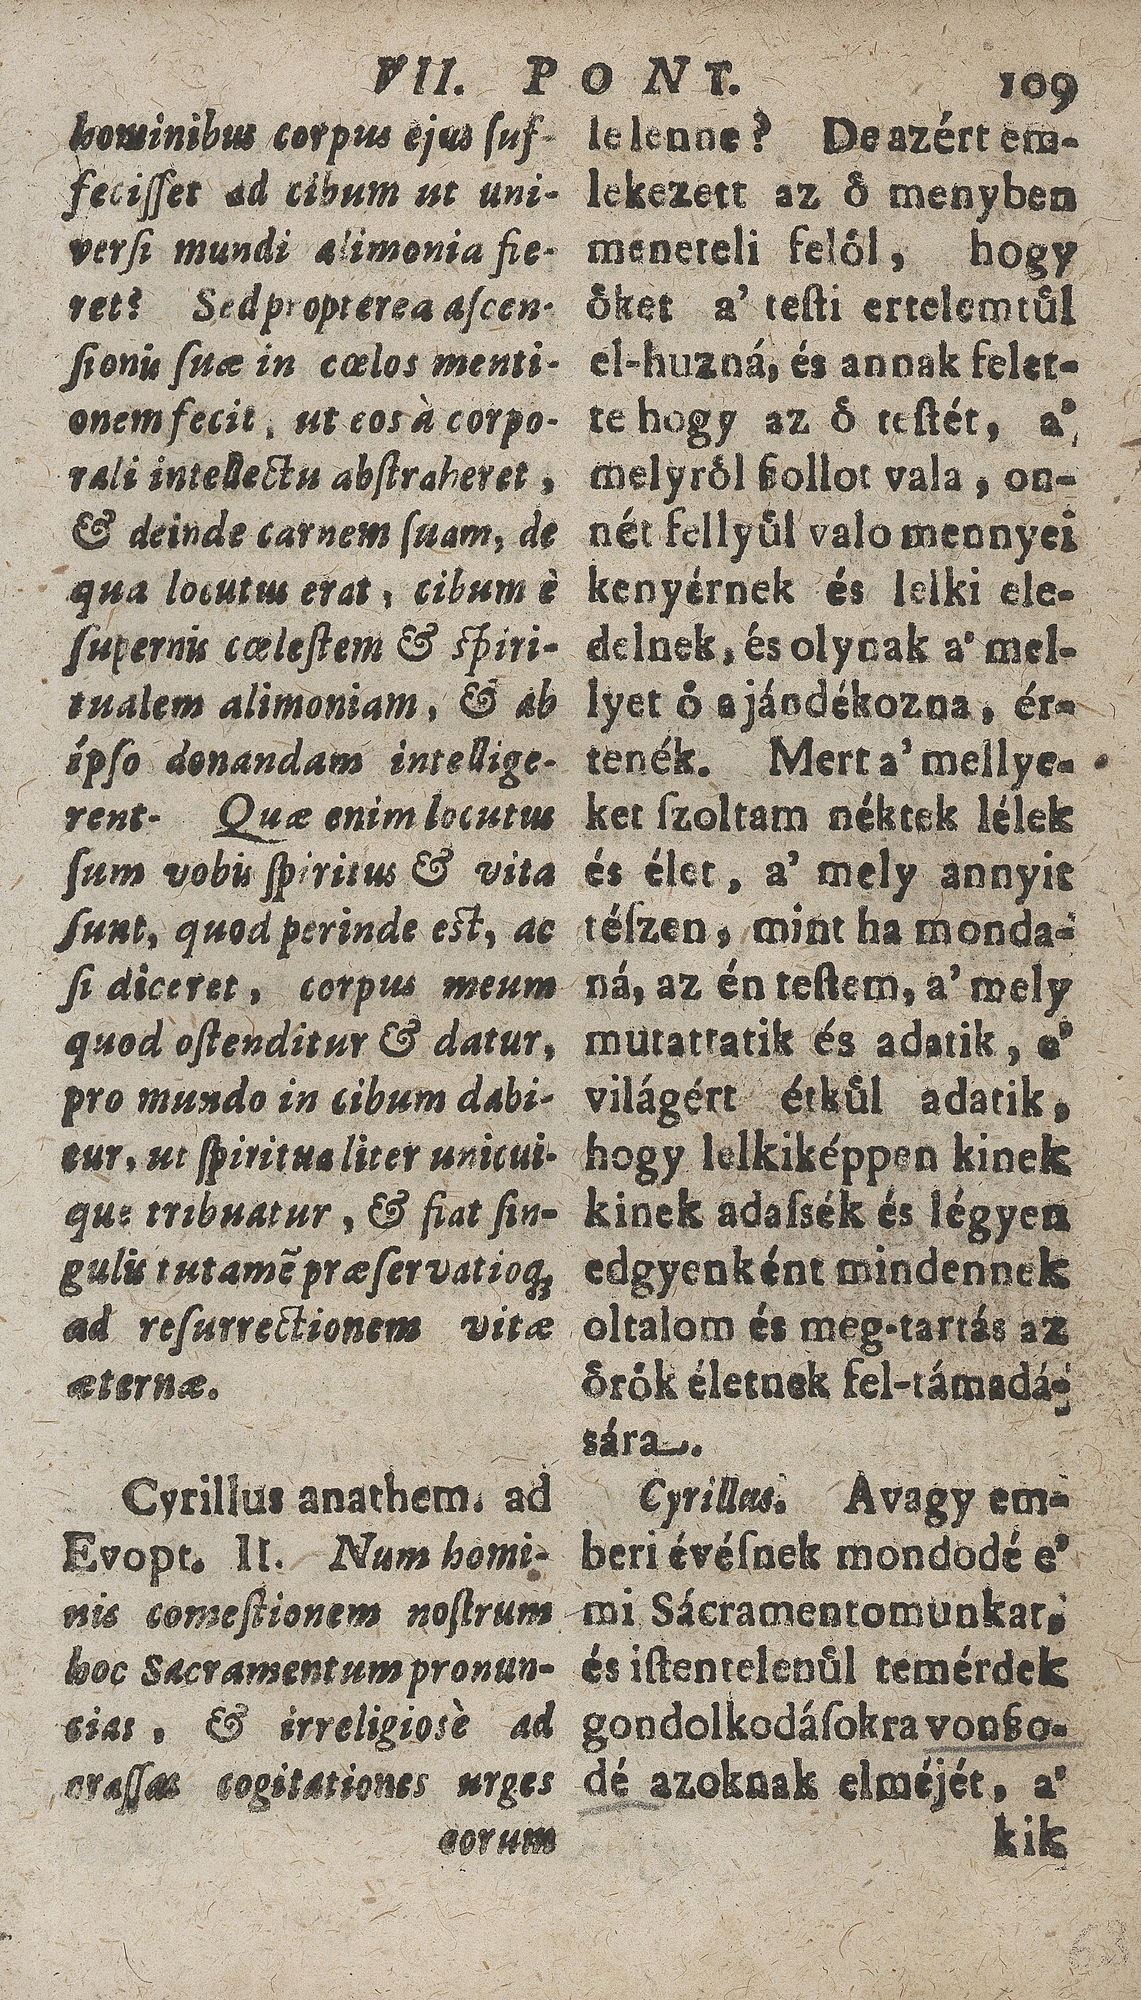 VII. PONT. 109
hominibus corpus ejus ſuf-
feciſſet ad cibum ut uni-
verſi mundi alimonia fie-
ret? Sed propterea aſcen-
ſionis ſuæ in cœlos menti-
onem fecit, ut eos à corpo-
rali intellectu abſtraheret,
& deinde carnem ſuam, de
qua locutus erat, cibum è
ſupernis cœleſtem & ſpiri-
tualem alimoniam, & ab
ipſo donandam intellige-
rent. Quæ enim locutus
ſum vobis ſpiritus & vita
ſunt, quod perinde eſt, ac
ſi diceret, corpus meum
quod oſtenditur & datur,
pro mundo in cibum dabi-
tur, ut ſpiritualiter unicui-
que tribuatur, & fiat ſin-
gulis tutamẽ præſervatioq;
ad reſurrectionem vitæ
æternæ.
Cyrillus anathem. ad
Evopt. II. Num homi-
nis comeſtionem noſtrum
hoc Sacramentum pronun-
cias, & irreligiosè ad
craſſas cogitationes urges
eorum
le lenne? De azért em-
lekezett az oͤ menyben
meneteli feloͤl, hogy
oͤket a' teſti ertelemtuͤl
el-huzná, és annak felet-
te hogy az oͤ teſtét, a'
melyroͤl ßollot vala, on-
nét fellyuͤl valo mennyei
kenyérnek és lelki ele-
delnek, és olynak a' mel-
lyet oͤ ajándékozna, ér-
tenék. Mert a' mellye-
ket ſzoltam néktek lélek
és élet, a' mely annyit
téſzen, mint ha monda-
ná, az én teſtem, a' mely
mutattatik és adatik, e'
világért étkuͤl adatik,
hogy lelkiképpen kinek
kinek adaſsék és légyen
edgyenként mindennek
oltalom és meg-tartás az
oͤroͤk életnek fel-támadá-
sára.
Cyrillus. Avagy em-
beri évéſnek mondodé e'
mi Sácramentomunkat,
és iſtentelenuͤl temérdek
gondolkodáſokra vonßo-
dé azoknak elméjét, a'
kik
63